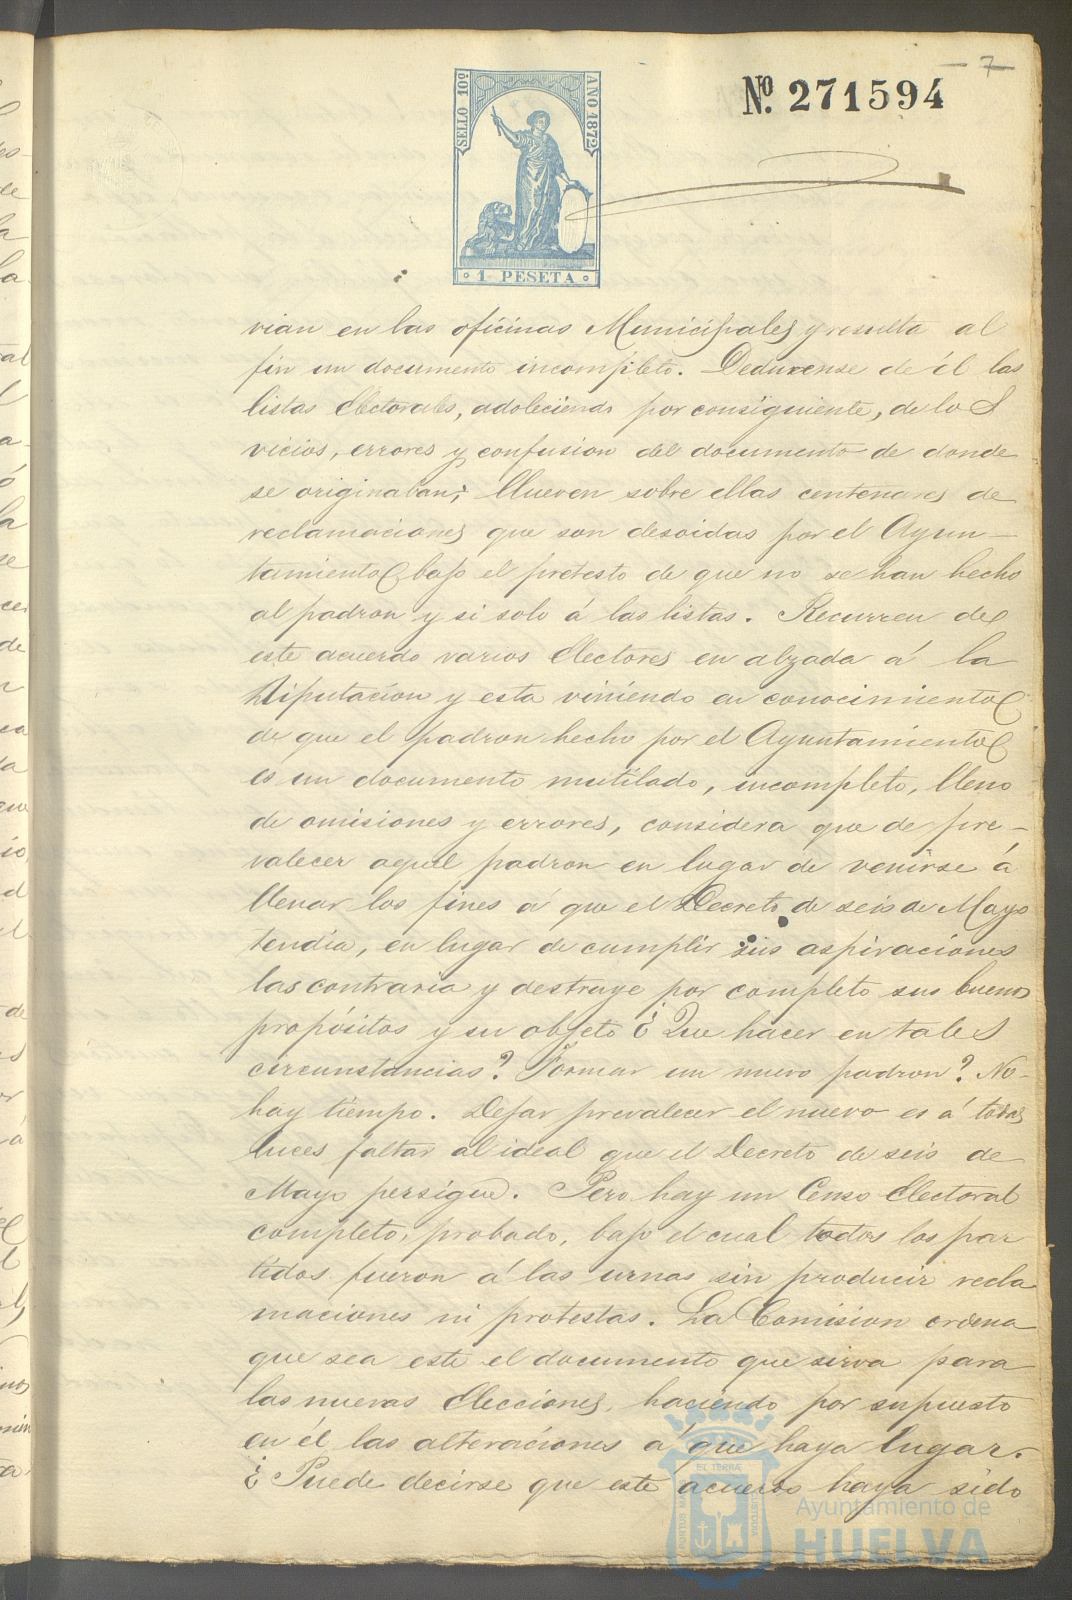 7
Nº. 271594
SELLO 10º
AÑO 1872
1 PESETA
vian en las oficinas Municipales y resulta al
fin un documento incompleto. Deducense de él las
listas electorales, adoleciendo por consiguiente, de los
vicios, errores y confusion del documento de donde
se originaban; llueven sobre ellas centenares de
reclamaciones que son desoidas por el Ayun-
tamiento bajo el pretesto de que no se han hecho
al padron y si solo á las listas. Recurren de
este acuerdo varios electores en alzada á la
Diputacion y esta viniendo en conocimiento
de que el padron hecho por el Ayuntamiento
es un documento mutilado, incompleto, lleno
de omisiones y errores, considera que de pre-
valecer aquel padron en lugar de venirse á
llenar los fines á que el Decreto de seis de Mayo
tendia, en lugar de cumplir sus aspiraciones
las contraria y destruye por completo sus buenos
propósitos y su objeto ¿Que hacer en tales
circunstancias? Formar un nuevo padron? No-
hay tiempo. Dejar prevalecer el nuevo es á todas
luces faltar al ideal que el Decreto de seis de
Mayo persigue. Pero hay un Censo electoral
completo, probado, bajo el cual todos los par
tidos fueron á las urnas sin producir recla
maciones ni protestas. La Comision ordena
que sea este el documento que sirva para
las nuevas elecciones, haciendo por supuesto
en él las alteraciones á que haya lugar.
¿Puede decirse que este acuerdo haya sido
Ayuntamiento de
HUELVA